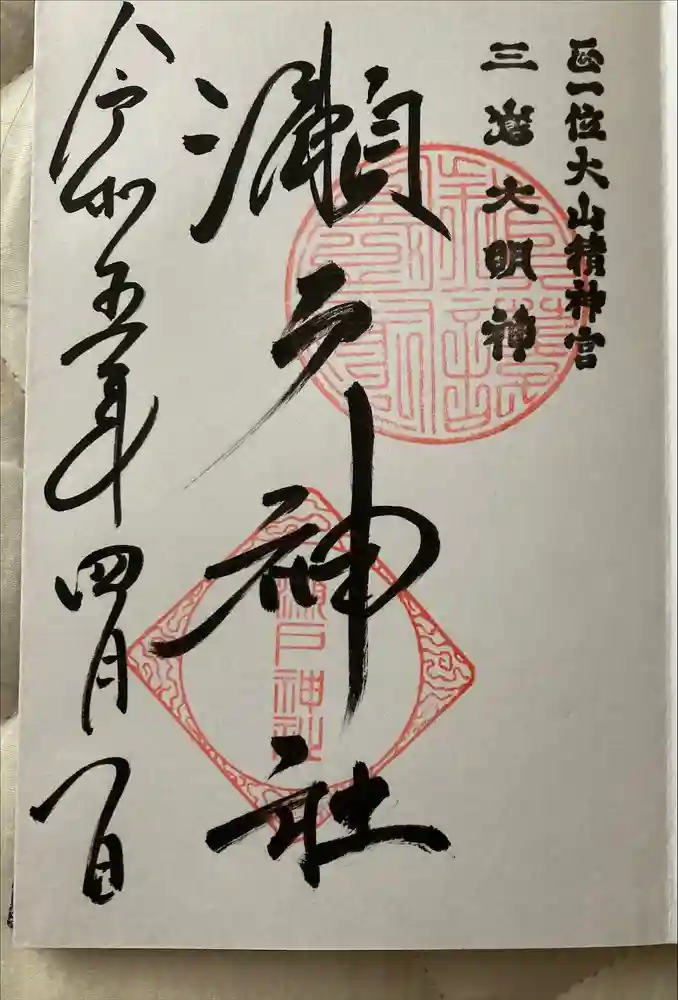 正一位大山積神宮
三嶌大明神
瀬戸神社
瀬戸神社
令和五年四月一日